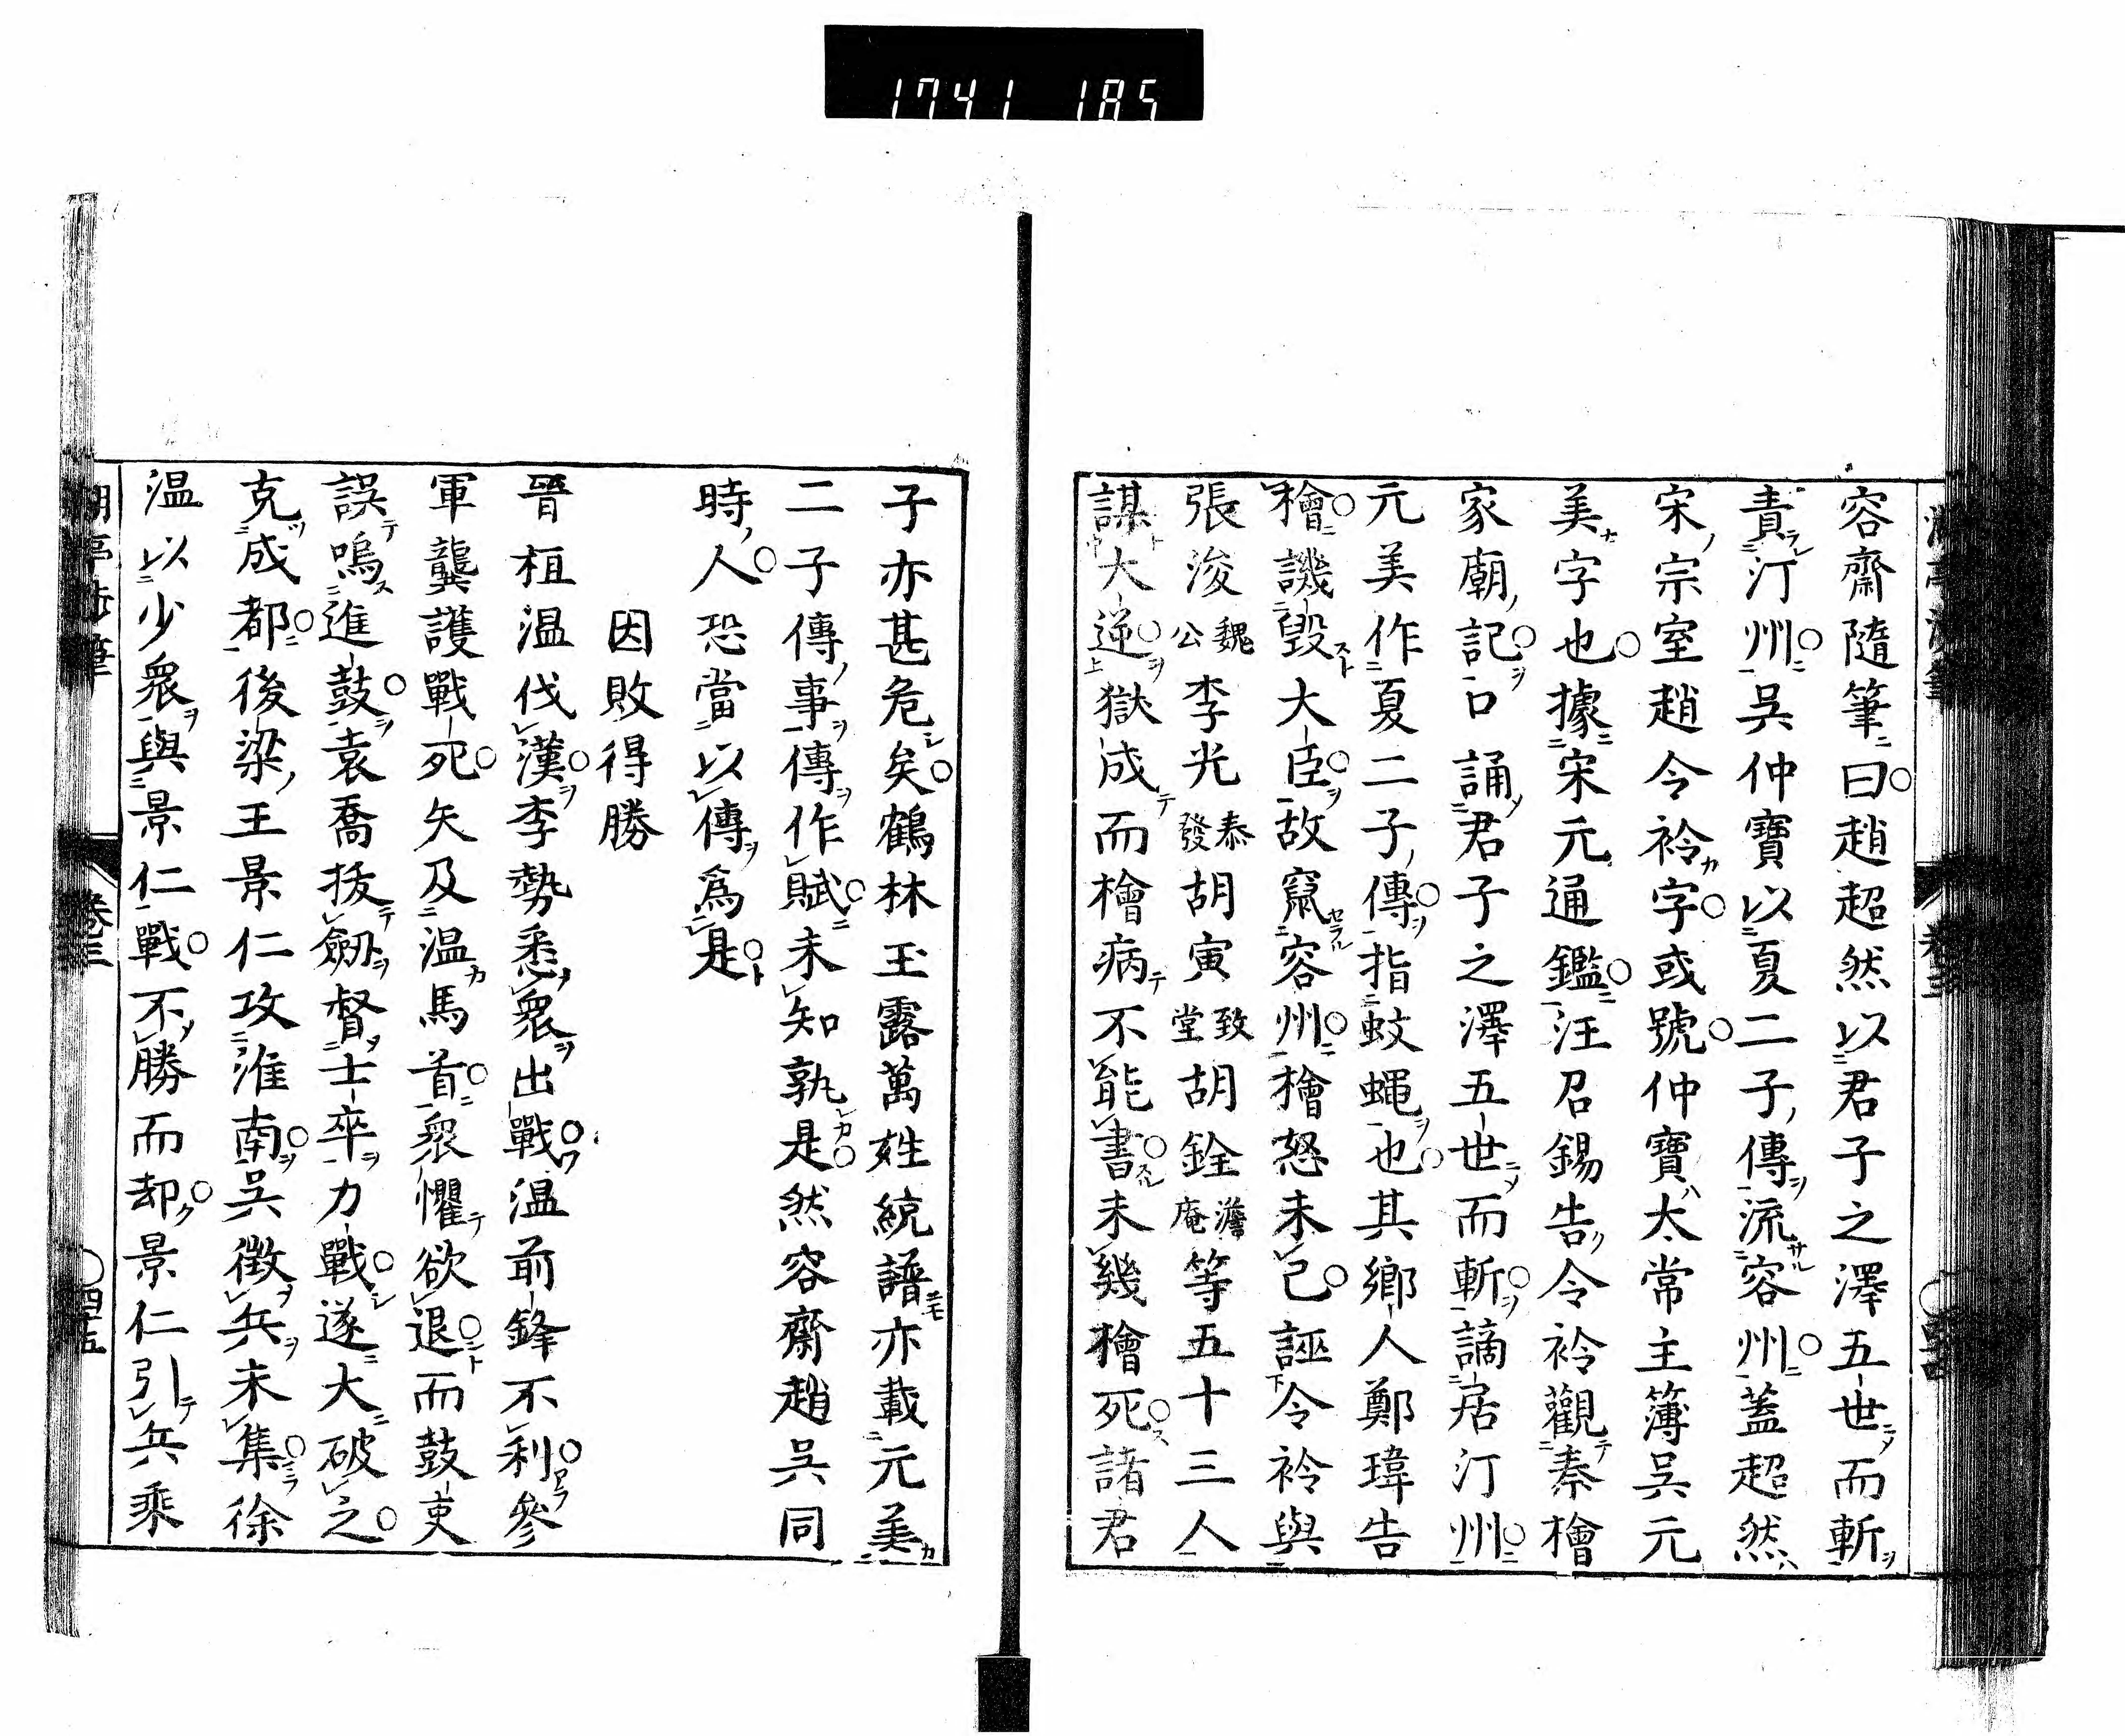 1741 185
容齋隨筆曰趙超然以君子之澤五世而斬
責汀州吳仲寶以夏二子傳流容州蓋超然
宋宗室趙令衿字或號仲寶太常主簿吳元
美字也據宋元通鑑汪召錫告令衿觀秦檜
家廟記口誦君子之澤五世而斬謫居汀州
元美作夏二子傳指蚊蠅也其鄉人鄭瑋告
檜譏毀大臣故竄容州檜怒未已誣令衿與
張浚魏公李光泰發胡寅致堂胡銓澹庵等五十三人
謀大逆獄成而檜病不能書未幾檜死諸君
子亦甚危矣鶴林玉露萬姓統譜亦載元美
二子傳事傳作賦未知孰是然容齋趙吳同
時人恐當以傳爲是
因敗得勝
晉桓溫伐漢李勢悉衆出戰温前鋒不利參
軍龔護戰死矢及温馬首衆懼欲退而鼓吏
誤鳴進鼓袁喬拔劔督士卒力戰遂大破之
克成都後梁王景仁攻淮南吳徵兵未集徐
温以少衆與景仁戰不勝而却景仁引兵乘
卷三
四五